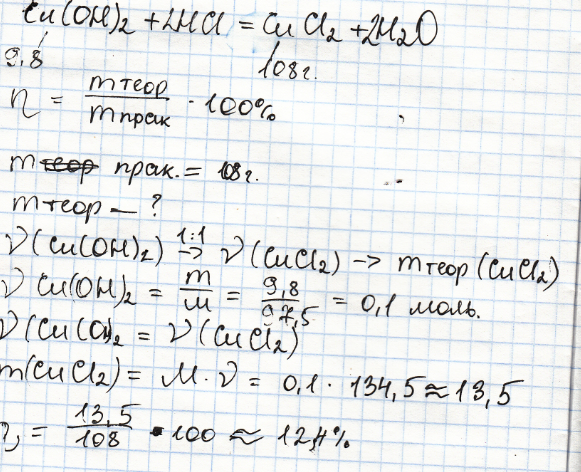 Cu(OH)₂ + 2HCl = CuCl₂ + 2H₂O
9,8 108г.
η = mтеор/mпрак · 100%
m прак. = 108г.
mтеор – ?
ν(Cu(OH)₂) 1:1→ ν(CuCl₂) -> mтеор(CuCl₂)
ν Cu(OH)₂ = m/M = 9,8/97,5 = 0,1 моль.
ν(Cu(OH)₂ = ν(CuCl₂)
m(CuCl₂) = M·ν = 0,1 · 134,5 ≈ 13,5
η = 13,5/108 · 100 ≈ 12,4%